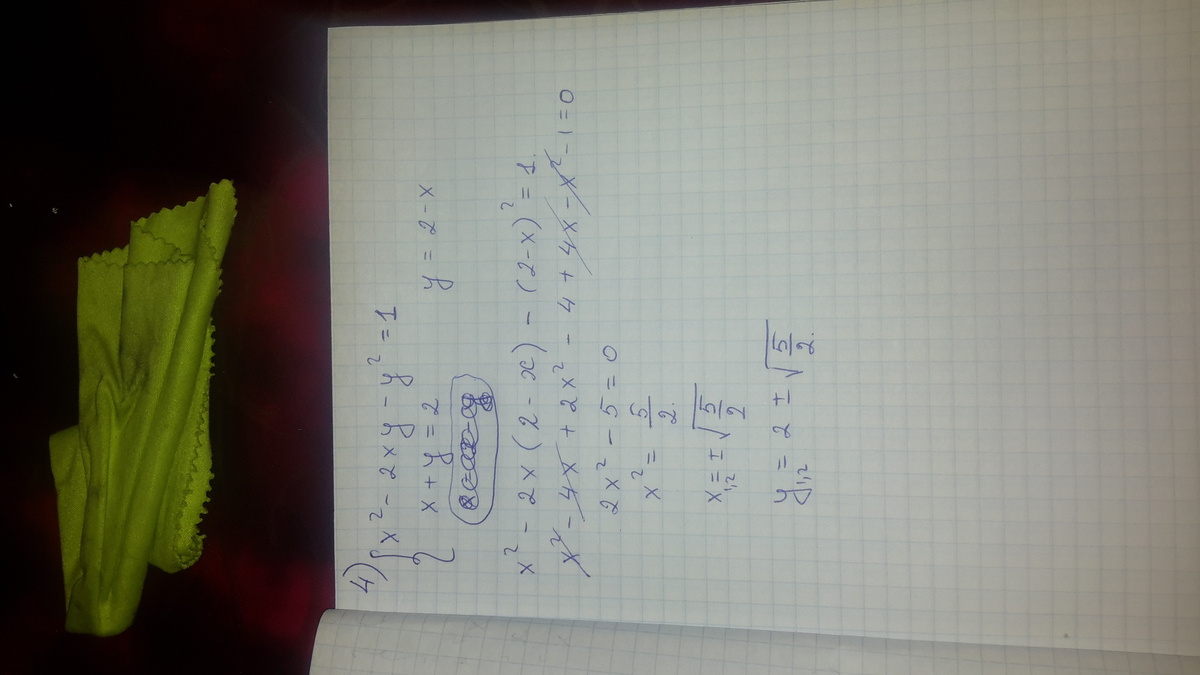 4) { x² - 2xy - y² = 1
x + y = 2      y = 2 - x
x² - 2x(2 - x) - (2-x)² = 1.
x² - 4x + 2x² - 4 + 4x - x² - 1 = 0
2x² - 5 = 0
x² = 5/2.
x₁,₂ = ± √(5/2)
y₁,₂ = 2 ± √(5/2).